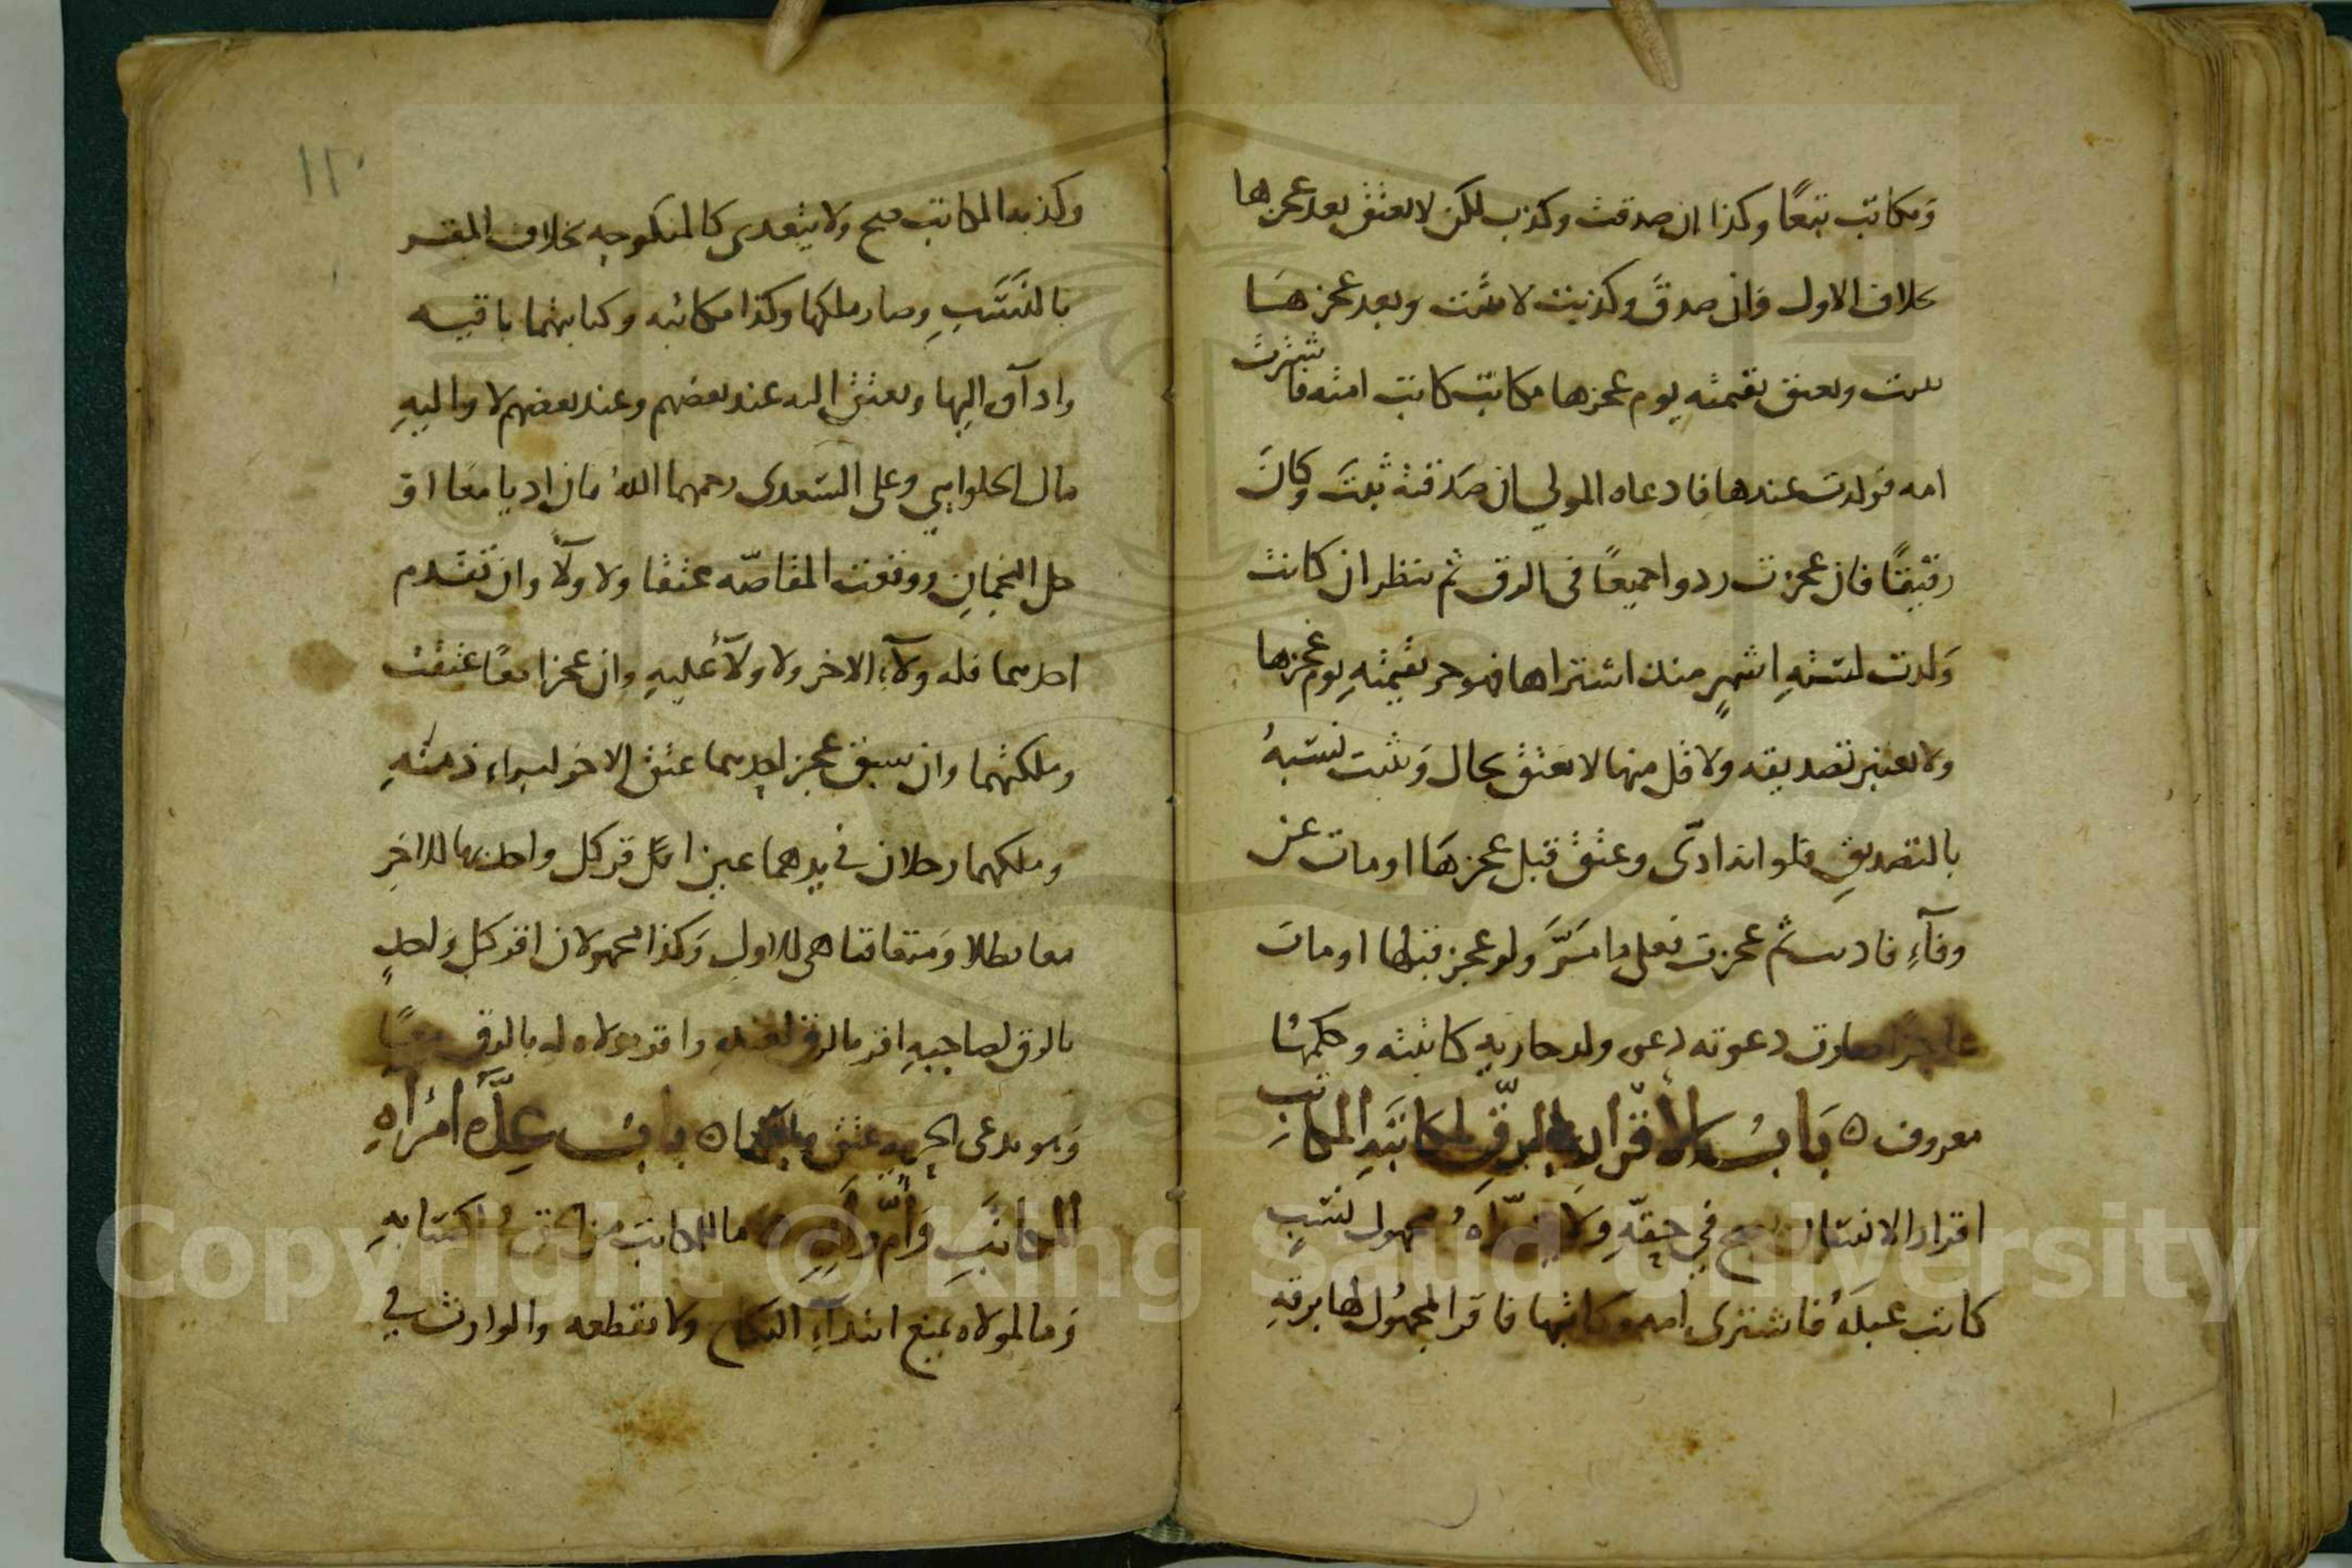 ومكاتب تبعًا وكذا ان صدقت وكذب لكن لا يعتق بعد عجزها
بخلاف الاول وان صدق وكذبت لا يثبت وبعد عجزها
يثبت ويعتق بقيمته يوم عجزها مكاتب كاتب امته فاشترت
امه فولدت عندها فادعاه المولي ان صدقته ثبت وكان
رقيقًا فان عجزت ردوا جميعًا في الرق ثم ينظر ان كانت
ولدت لستة اشهر منذ اشتراها فهو حر بقيمته يوم عجزها
ولا يعتبر تصديقه ولاقل منها لا يعتق بحال ويثبت نسبه
بالتصديق فلو انه ادّى وعتق قبل عجزها او مات عن
وفآء فاديت ثم عجزت فعلى ما مرّ ولو عجز قبلها او مات
عاجزًا صارت دعوته دعوى ولد جارية كاتبته وحكمها
معروف ه باب الاقرار بالرق لمكاتبه المكاتب
اقرار الانسان يصح في حقه ولا مجهول نسب
كاتب عبده فاشترى امه وكاتبها فاقر المجهول لها برقه
١١٠
وكذبه المكاتب صح ولا يتعدى كالمنكوحه بخلاف المقر
بالنسب وصار ملكها وكذا مكاتبه وكتابتهما باقيه
واداؤه اليها ويعتق اليه عند بعضهم وعند بعضهم لا واليه
مال الحلوايي وعلى السعدى رحمهما الله فان اديا معا او
حل النجمان ووقعت المقاصّه عتقا ولا ولآ وان تقدم
احدهما فله ولآء الاخر ولا ولآء عليه وان عجزا معًا عتقت
وملكتهما وان سبق عجز احدهما عتق الاخر لبراءة ذمته
وملكهما رجلان في يدهما عبد اقر كل واحد بهما للاخر
معا بطلا ومتعاقبا هي للاول وكذا مجهولان اقر كل واحد
بالرق لصاحبه اقر بالرق لعبده واقر مولاه له بالرق معًا
وهو يدعى الحريه عتق ه باب عدة امرأه
المكاتب وأم ولده ما للمكاتب من اكتسابه
وما لمولاه يمنع ابتدآء النكاح ولا يقطعه والوارث في
Copyright © King Saud University